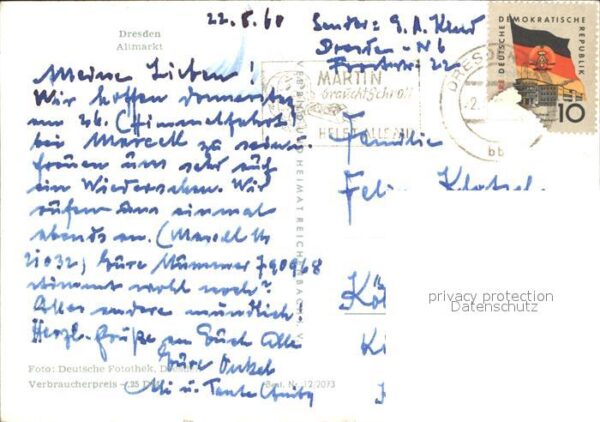 Dresden
Altmarkt
22.5.60
Meine Lieben!
Wir hoffen donnerstag
am 26. (Himmelfahrt)
bei Marcell zu sein.
freuen uns sehr auf
ein Wiedersehen. Wir
rufen dann einmal
abends an. (Marcell
21032) Eure Nummer 790968
stimmt wohl noch?
Alles andere mündlich!
Herzl. Grüße an Euch Alle
Eure Onkel
u. Tante
Foto: Deutsche Fotothek, Dresden
Verbraucherpreis -,25 DM
Best. Nr. 12/2073
VERBAND UND HEIMAT REICHENBACH
Sender: G. A.
Dresden - N 6
22
MARTIN
braucht Schrott
HELFT ALLE MIT
DRESDEN
bb
DEUTSCHE DEMOKRATISCHE REPUBLIK
10
Familie
privacy protection
Datenschutz